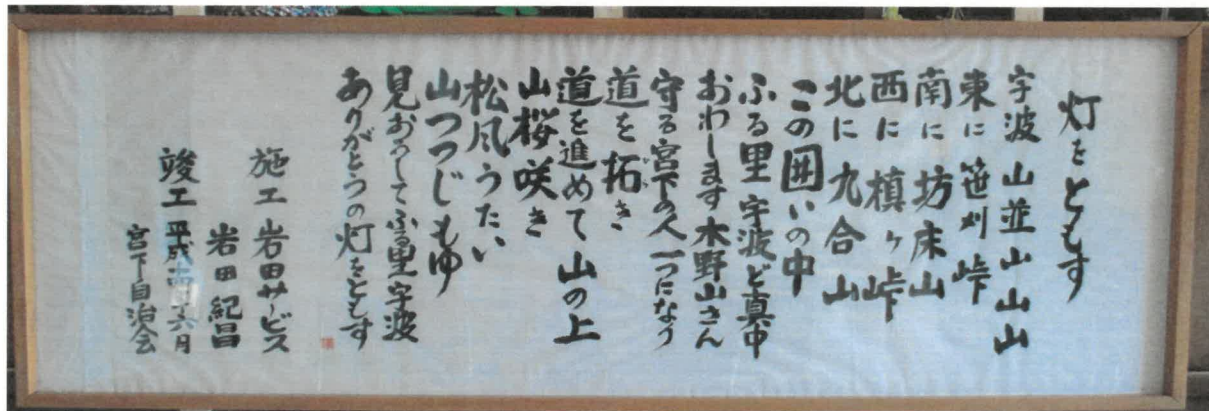 灯をともす
宇波 山並山山山
東に笹刈峠
南に坊床山
西に槙ヶ峠
北に九合山
この囲いの中
ふる里宇波ど真中
おわします木野山さん
守る宮下の人一つになり
道を拓き
道を進めて山の上
山桜咲き
松風うたい
山つつじもゆ
見おろしてふる里宇波
ありがとうの灯をともす
施工 岩田サービス
岩田紀昌
竣工 平成十四年六月
宮下自治会